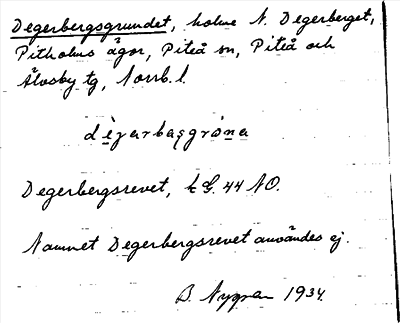 Degerbergsgrundet, holme N. Degerberget,
Pitholms ägor, Piteå sn, Piteå och
Älvsby tg, Norrb. l.
Degerbergsrevet, k G. 44 NO.
Namnet Degerbergsrevet användes ej.
B. Nygren 1934.